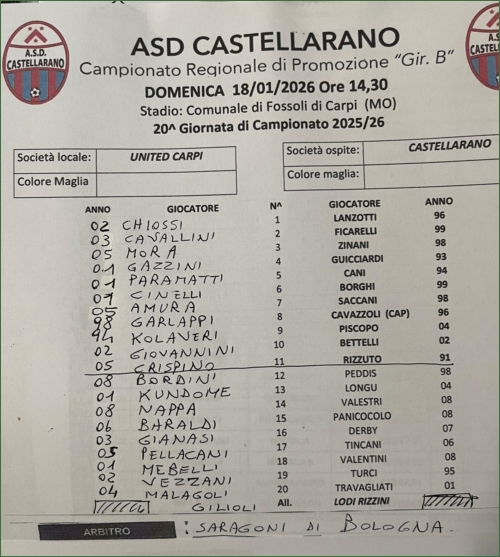 A.S.D.
CASTELLARANO
ASD CASTELLARANO
Campionato Regionale di Promozione "Gir. B"
DOMENICA 18/01/2026 Ore 14,30
Stadio: Comunale di Fossoli di Carpi (MO)
20^ Giornata di Campionato 2025/26
Società locale: UNITED CARPI Società ospite: CASTELLARANO
Colore Maglia Colore maglia:
ANNO GIOCATORE N^ GIOCATORE ANNO
02 CHIOSSI 1 LANZOTTI 96
03 CAVALLINI 2 FICARELLI 99
05 MORA 3 ZINANI 98
01 GAZZINI 4 GUICCIARDI 93
01 PARAMATTI 5 CANI 94
01 CINELLI 6 BORGHI 99
05 AMURA 7 SACCANI 98
98 GARLAPPI 8 CAVAZZOLI (CAP) 96
94 KOLAVERI 9 PISCOPO 04
02 GIOVANNINI 10 BETTELLI 02
05 CRISPINO 11 RIZZUTO 91
08 BORDINI 12 PEDDIS 98
01 KUNDOME 13 LONGU 04
08 NAPPA 14 VALESTRI 08
06 BARALDI 15 PANICOCOLO 08
03 GIANASI 16 DERBY 07
05 PELLACANI 17 TINCANI 06
01 MEBELLI 18 VALENTINI 08
02 VEZZANI 19 TURCI 95
04 MALAGOLI 20 TRAVAGLIATI 01
GILIOLI All. LODI RIZZINI
ARBITRO : SARAGONI DI BOLOGNA.